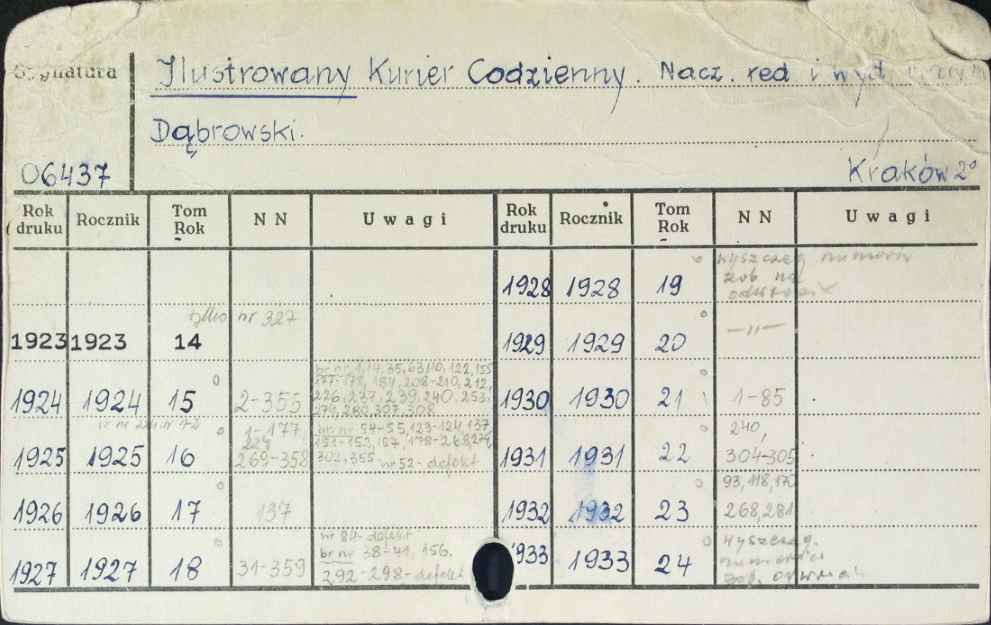 Sygnatura
Ilustrowany Kurier Codzienny. Nacz. red i wyd.
Dąbrowski.
06437
Kraków 2°
Rok druku Rocznik Tom Rok NN Uwagi Rok druku Rocznik Tom Rok NN Uwagi
1928 1928 19 wyszczeg numerów zob na
tylko nr 327
1923 1923 14
1929 1929 20 —"—
1924 1924 15 2-355 br nr 1,14,35,63,110,122,155
177-178, 184, 208-210, 212,
226, 237, 239, 240, 253,
279, 280, 307, 308
1930 1930 21 1-85
1925 1925 16 1-177
269-358 br nr 54-55, 123-124, 137
151-152, 167, 178-268,
302, 355 nr 52- defekt
1931 1931 22 240,
304-305
1926 1926 17 137
1932 1932 23 93, 118, 170
268, 281
1927 1927 18 31-359 nr 84- defekt
br nr 38-41, 156.
292-298- defekt
1933 1933 24 wyszczeg.
numerów